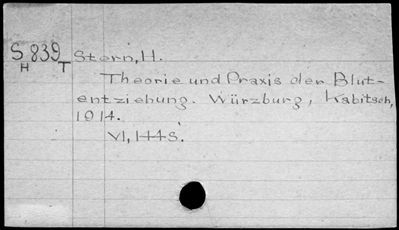 S 839 Stern, H.
H T
Theorie und Praxis der Blut-
entziehung. Würzburg, Kabitsch,
1914.
VI, 144 S.